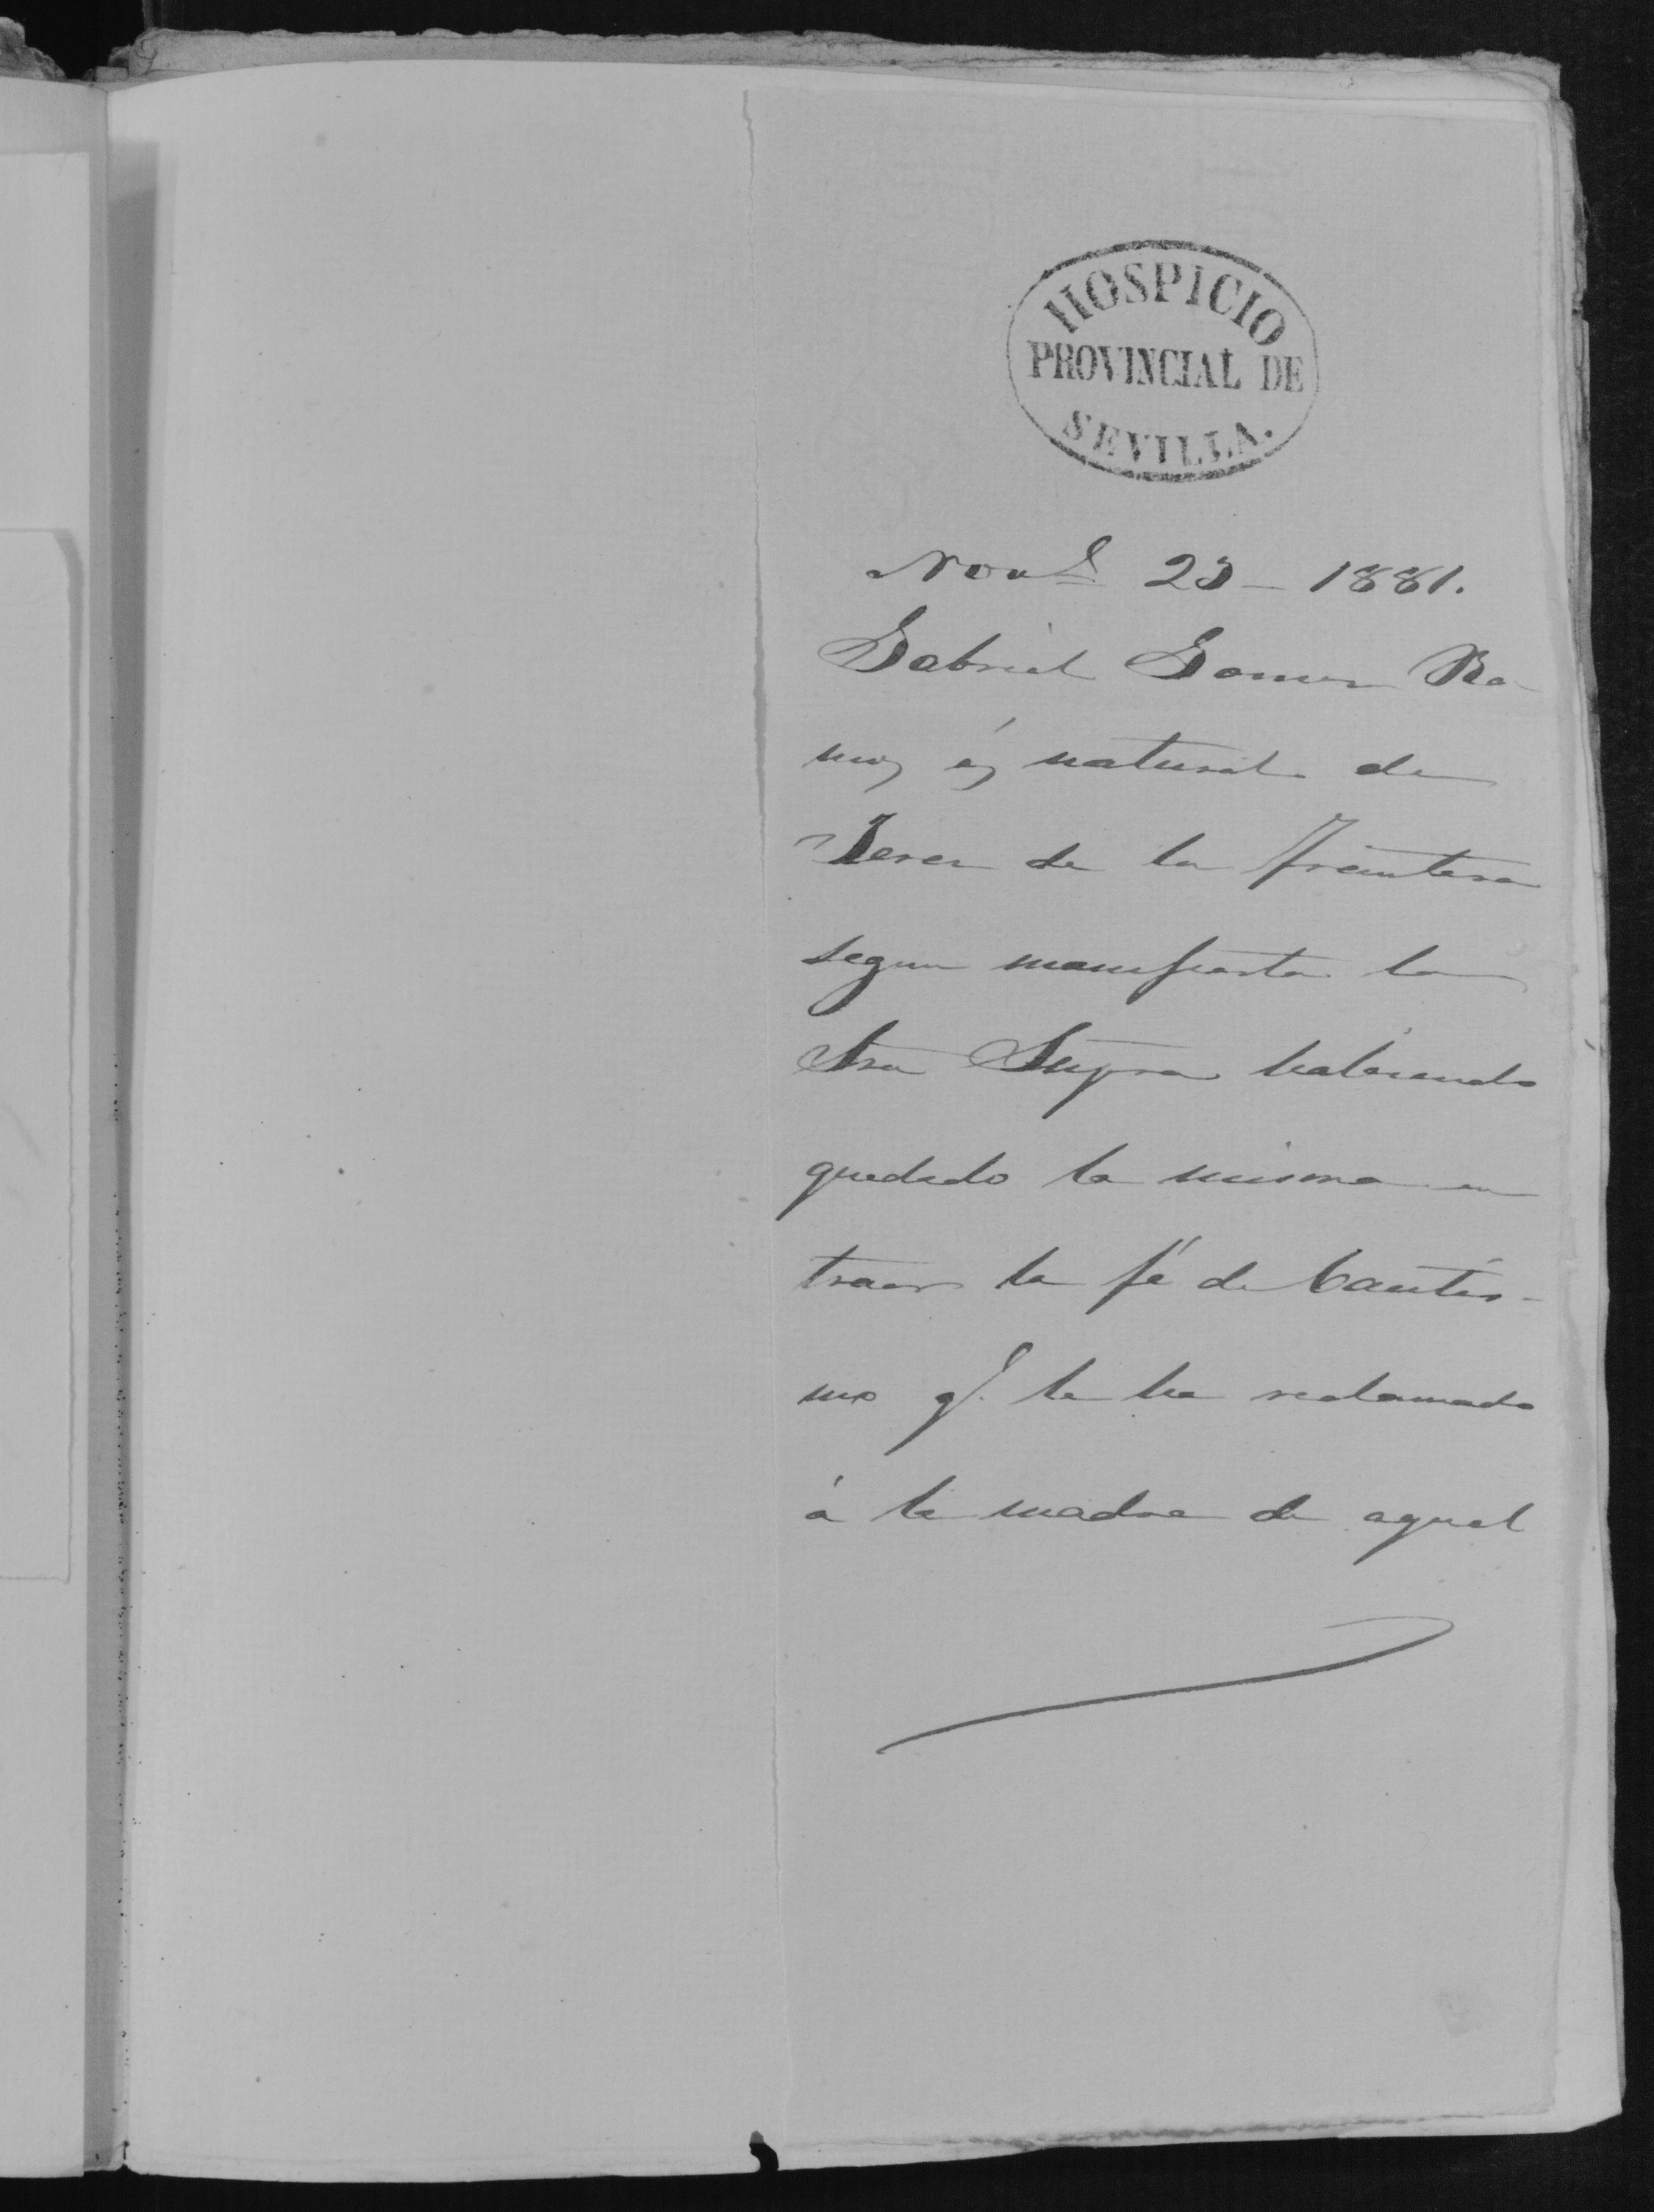 HOSPICIO
PROVINCIAL DE
SEVILLA.
Nove 23 - 1881.
Gabriel Gomez Ra-
mos és natural de
Jerez de la Frontera
segun manifiesta la
Sra Supra habiendo
quedado la misma en
traer la fé de bautis-
mo q.e le ha reclamado
á la madre de aquel